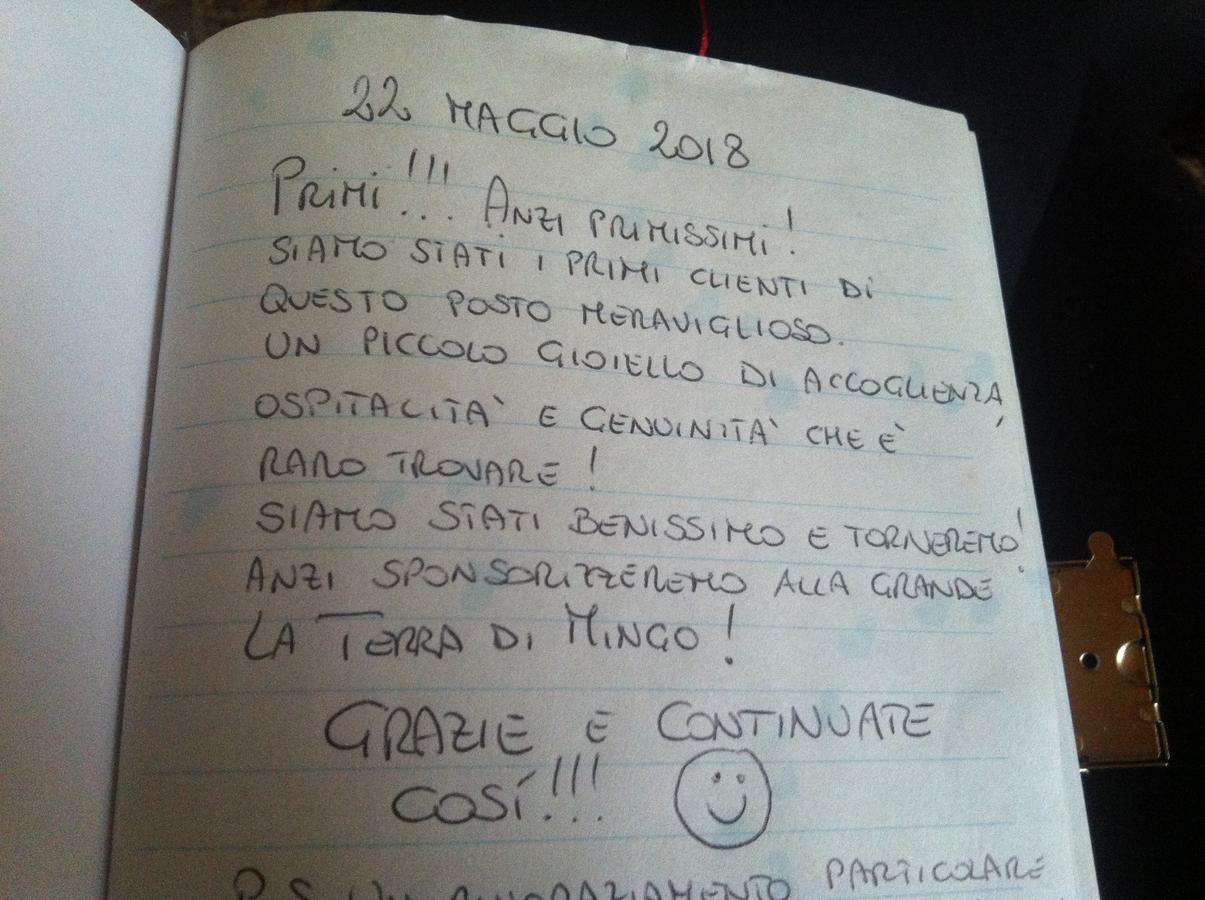 22 MAGGIO 2018
PRIMI!!! ANZI PRIMISSIMI!
SIAMO STATI I PRIMI CLIENTI DI
QUESTO POSTO MERAVIGLIOSO.
UN PICCOLO GIOIELLO DI ACCOGLIENZA,
OSPITALITA' E GENUINITA' CHE E'
RARO TROVARE!
SIAMO STATI BENISSIMO E TORNEREMO!
ANZI SPONSORIZZEREMO ALLA GRANDE
LA TERRA DI MINGO!
GRAZIE E CONTINUATE
COSÍ!!!
P.S. UN RINGRAZIAMENTO PARTICOLARE